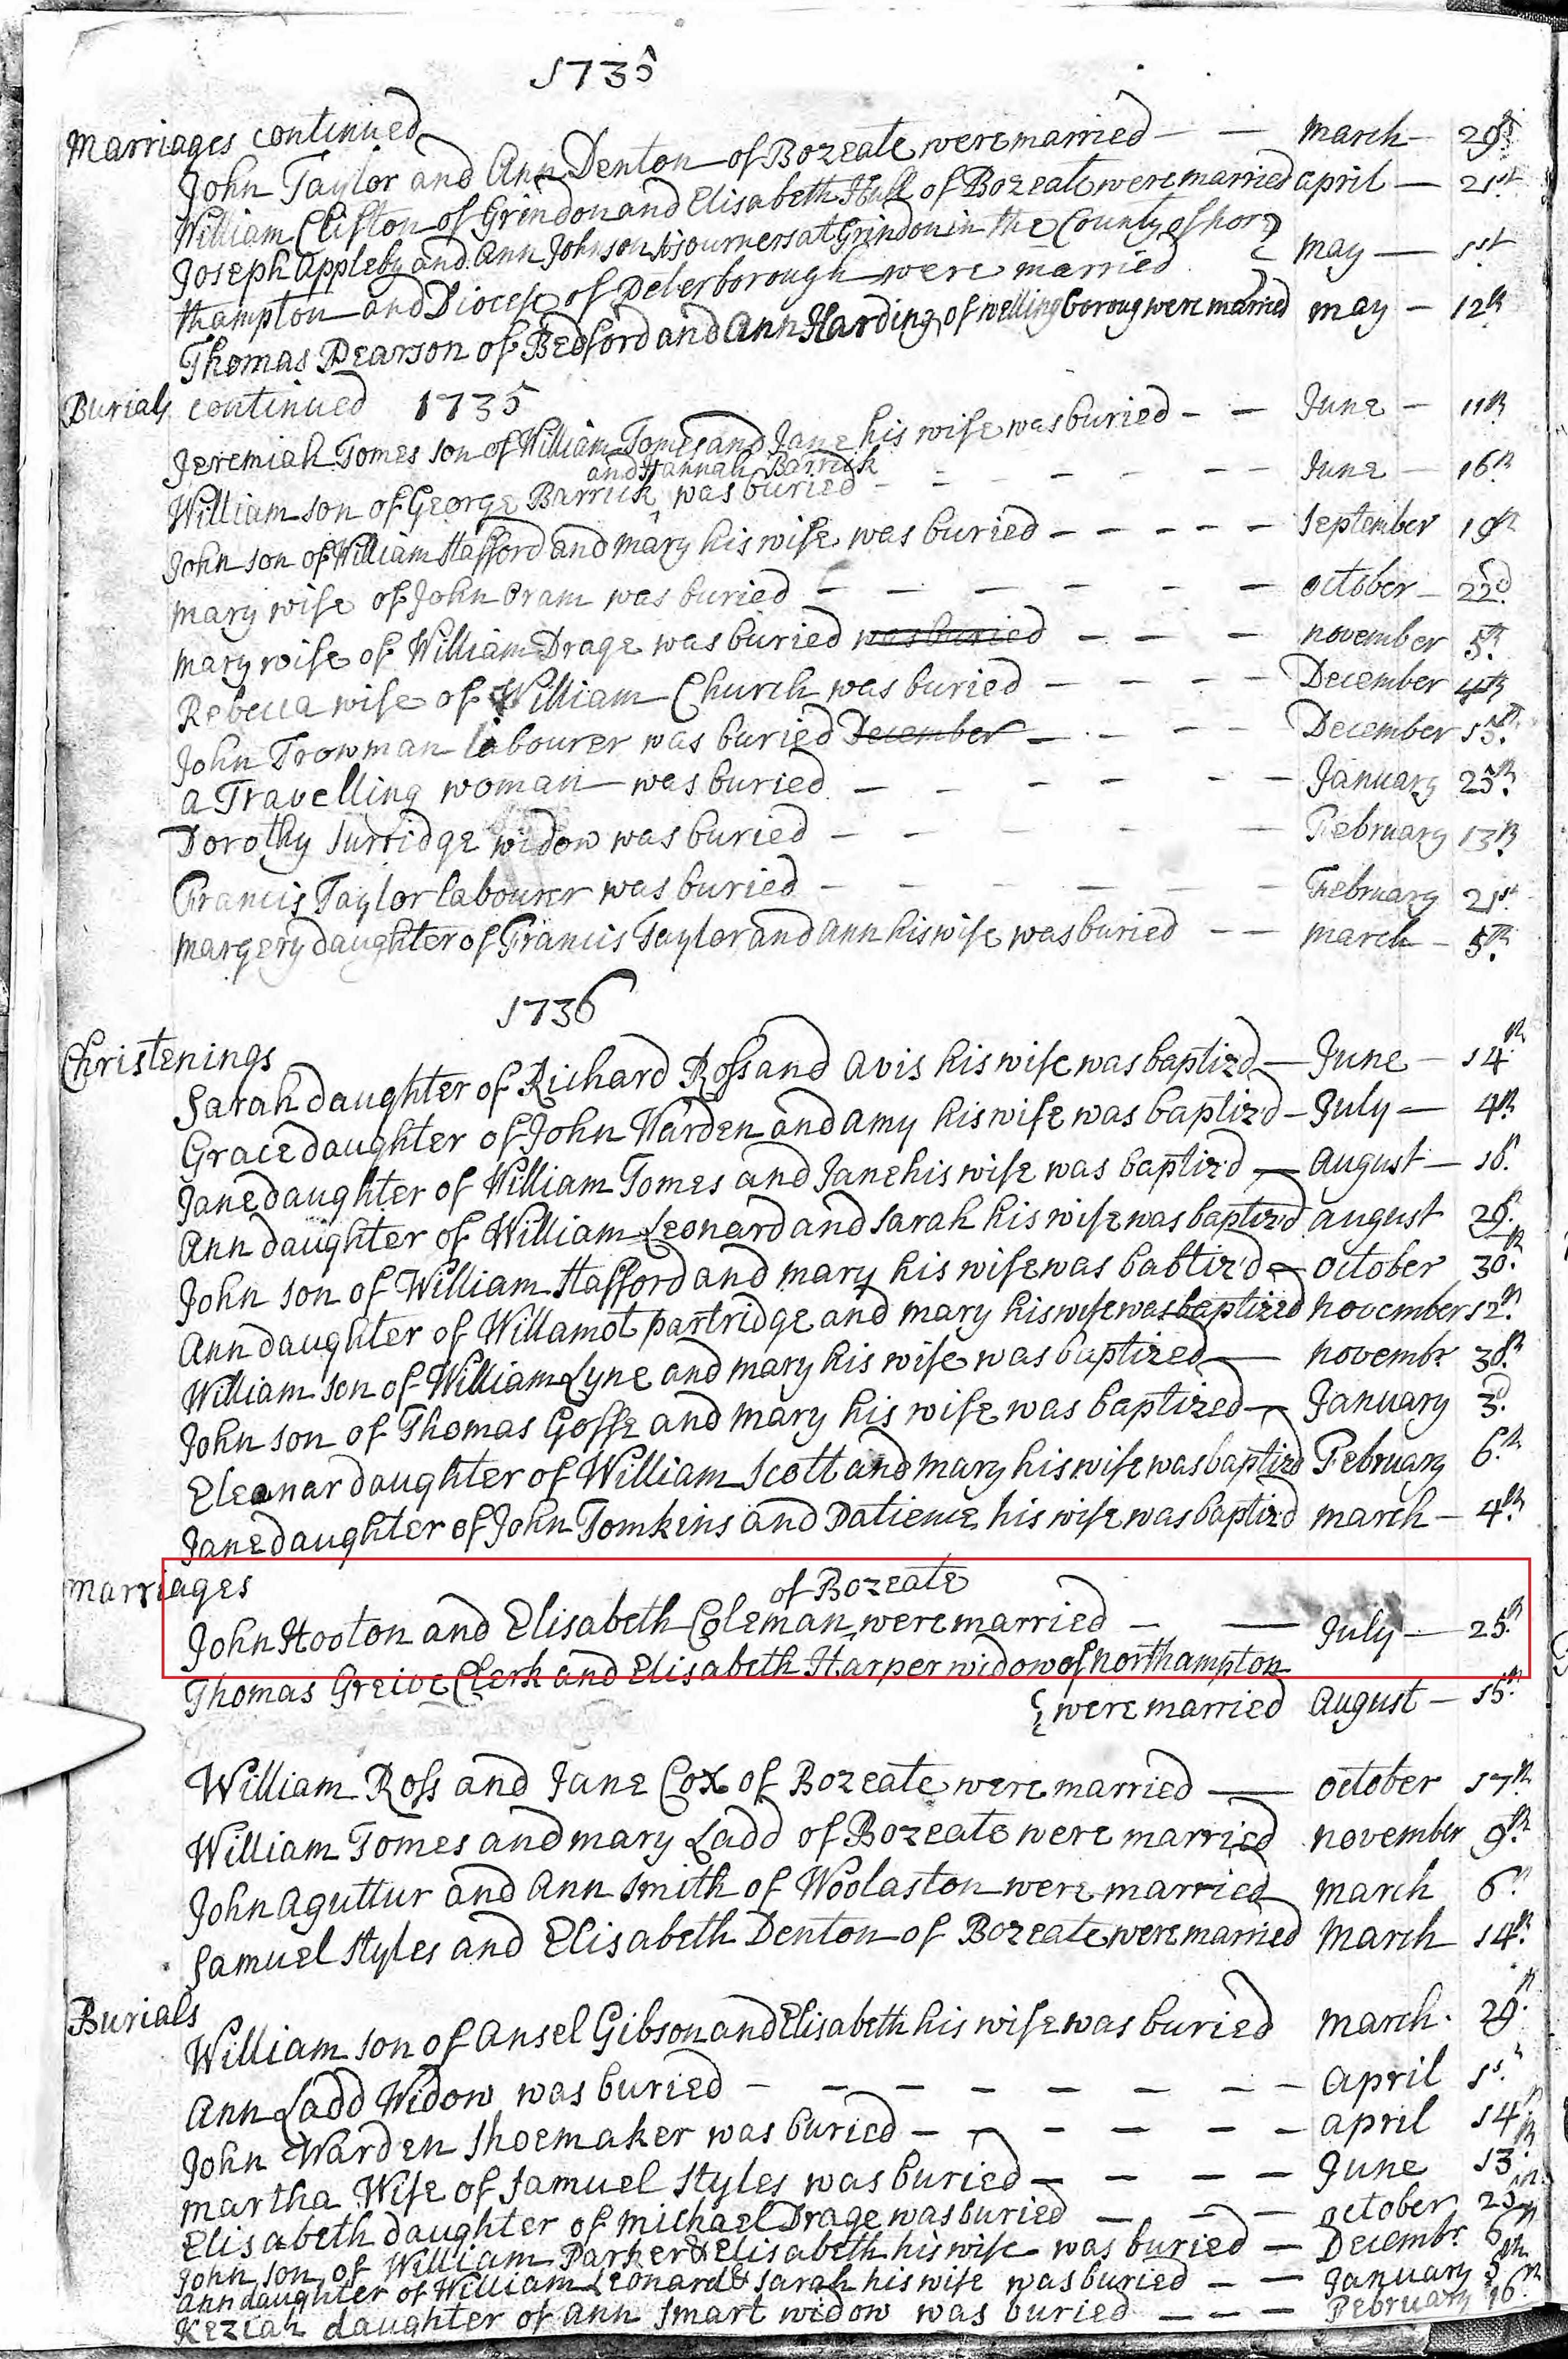 1735
Marriages continued
John Taylor and Ann Denton of Bozeate were married — — March — 29th
William Clifton of Grindon and Elisabeth Hull of Bozeate were married April — 21st
Joseph Appleby and Ann Johnson sojourners at Grindon in the County of Nor
thampton and Diocese of Peterborough were married May — 1st
Thomas Pearson of Bedford and Ann Harding of Wellingboroug were married May — 12th
Burials continued 1735
Jeremiah Tomes son of William Tomes and Jane his wife was buried - - June - 11th
and Hannah Barrick
William son of George Barrick ‸ was buried - - - - - - June - 16th
John son of William Stafford and Mary his wife was buried - - - - - September 19th
Mary wife of John was buried - - - - - - - October - 22d
Mary wife of William Drage was buried was buried - - - November 5th
Rebecca wife of William Church was buried - - - - December 4th
John Trowman labourer was buried December - - - - December 15th
a Travelling woman was buried - - - - - January 25th
Dorothy Surridge widow was buried - - - - - February 13th
Francis Taylor labourer was buried - - - - - - February 21st
Margery daughter of Francis Taylor and Ann his wife was buried - - March - 5th
1736
Christenings
Sarah daughter of Richard Ross and Avis his wife was baptizd — June - 14th
Grace daughter of John Warden and Amy his wife was baptiz'd - July — 4th
Jane daughter of William Tomes and Jane his wife was baptiz'd — August — 16th
Ann daughter of William Leonard and Sarah his wife was baptiz'd August 29th
John son of William Stafford and Mary his wife was babtiz'd — October 30th
Ann daughter of Willamot partridge and Mary his wife was baptized November 12th
William son of William Lyne and Mary his wife was baptized — Novembr 30th
John son of Thomas Goffe and Mary his wife was baptized — January 3d
Eleanar daughter of William Scott and Mary his wife was baptizd February 6th
Jane daughter of John Tomkins and Patience his wife was baptizd March — 4th
Marriages
of Bozeate
John Hooton and Elisabeth Coleman ‸ were married - — July — 25th
Thomas Greive Clerk and Elisabeth Harper widow of Northampton
were married August — 15th
William Ross and Jane Cox of Bozeate were married — October 17th
William Tomes and Mary Ladd of Bozeate were married November 9th
John Aguttur and Ann Smith of Woolaston were married March 6th
Samuel Styles and Elisabeth Denton of Bozeate were married March 14th
Burials
William son of Ansel Gibson and Elisabeth his wife was buried March 29th
Ann Ladd Widow was buried - - - - - - - - April 1st
John Warden Shoemaker was buried - - - - - - April 14th
Martha Wife of Samuel Styles was buried - - - - June 13th
Elisabeth daughter of Michael Drage was buried - - - October
John son of William Parker & Elisabeth his wife was buried - Decembr 6th
Ann daughter of William Leonard & Sarah his wife was buried - - January 5th
Keziah daughter of Ann Smart widow was buried - - - February 16th